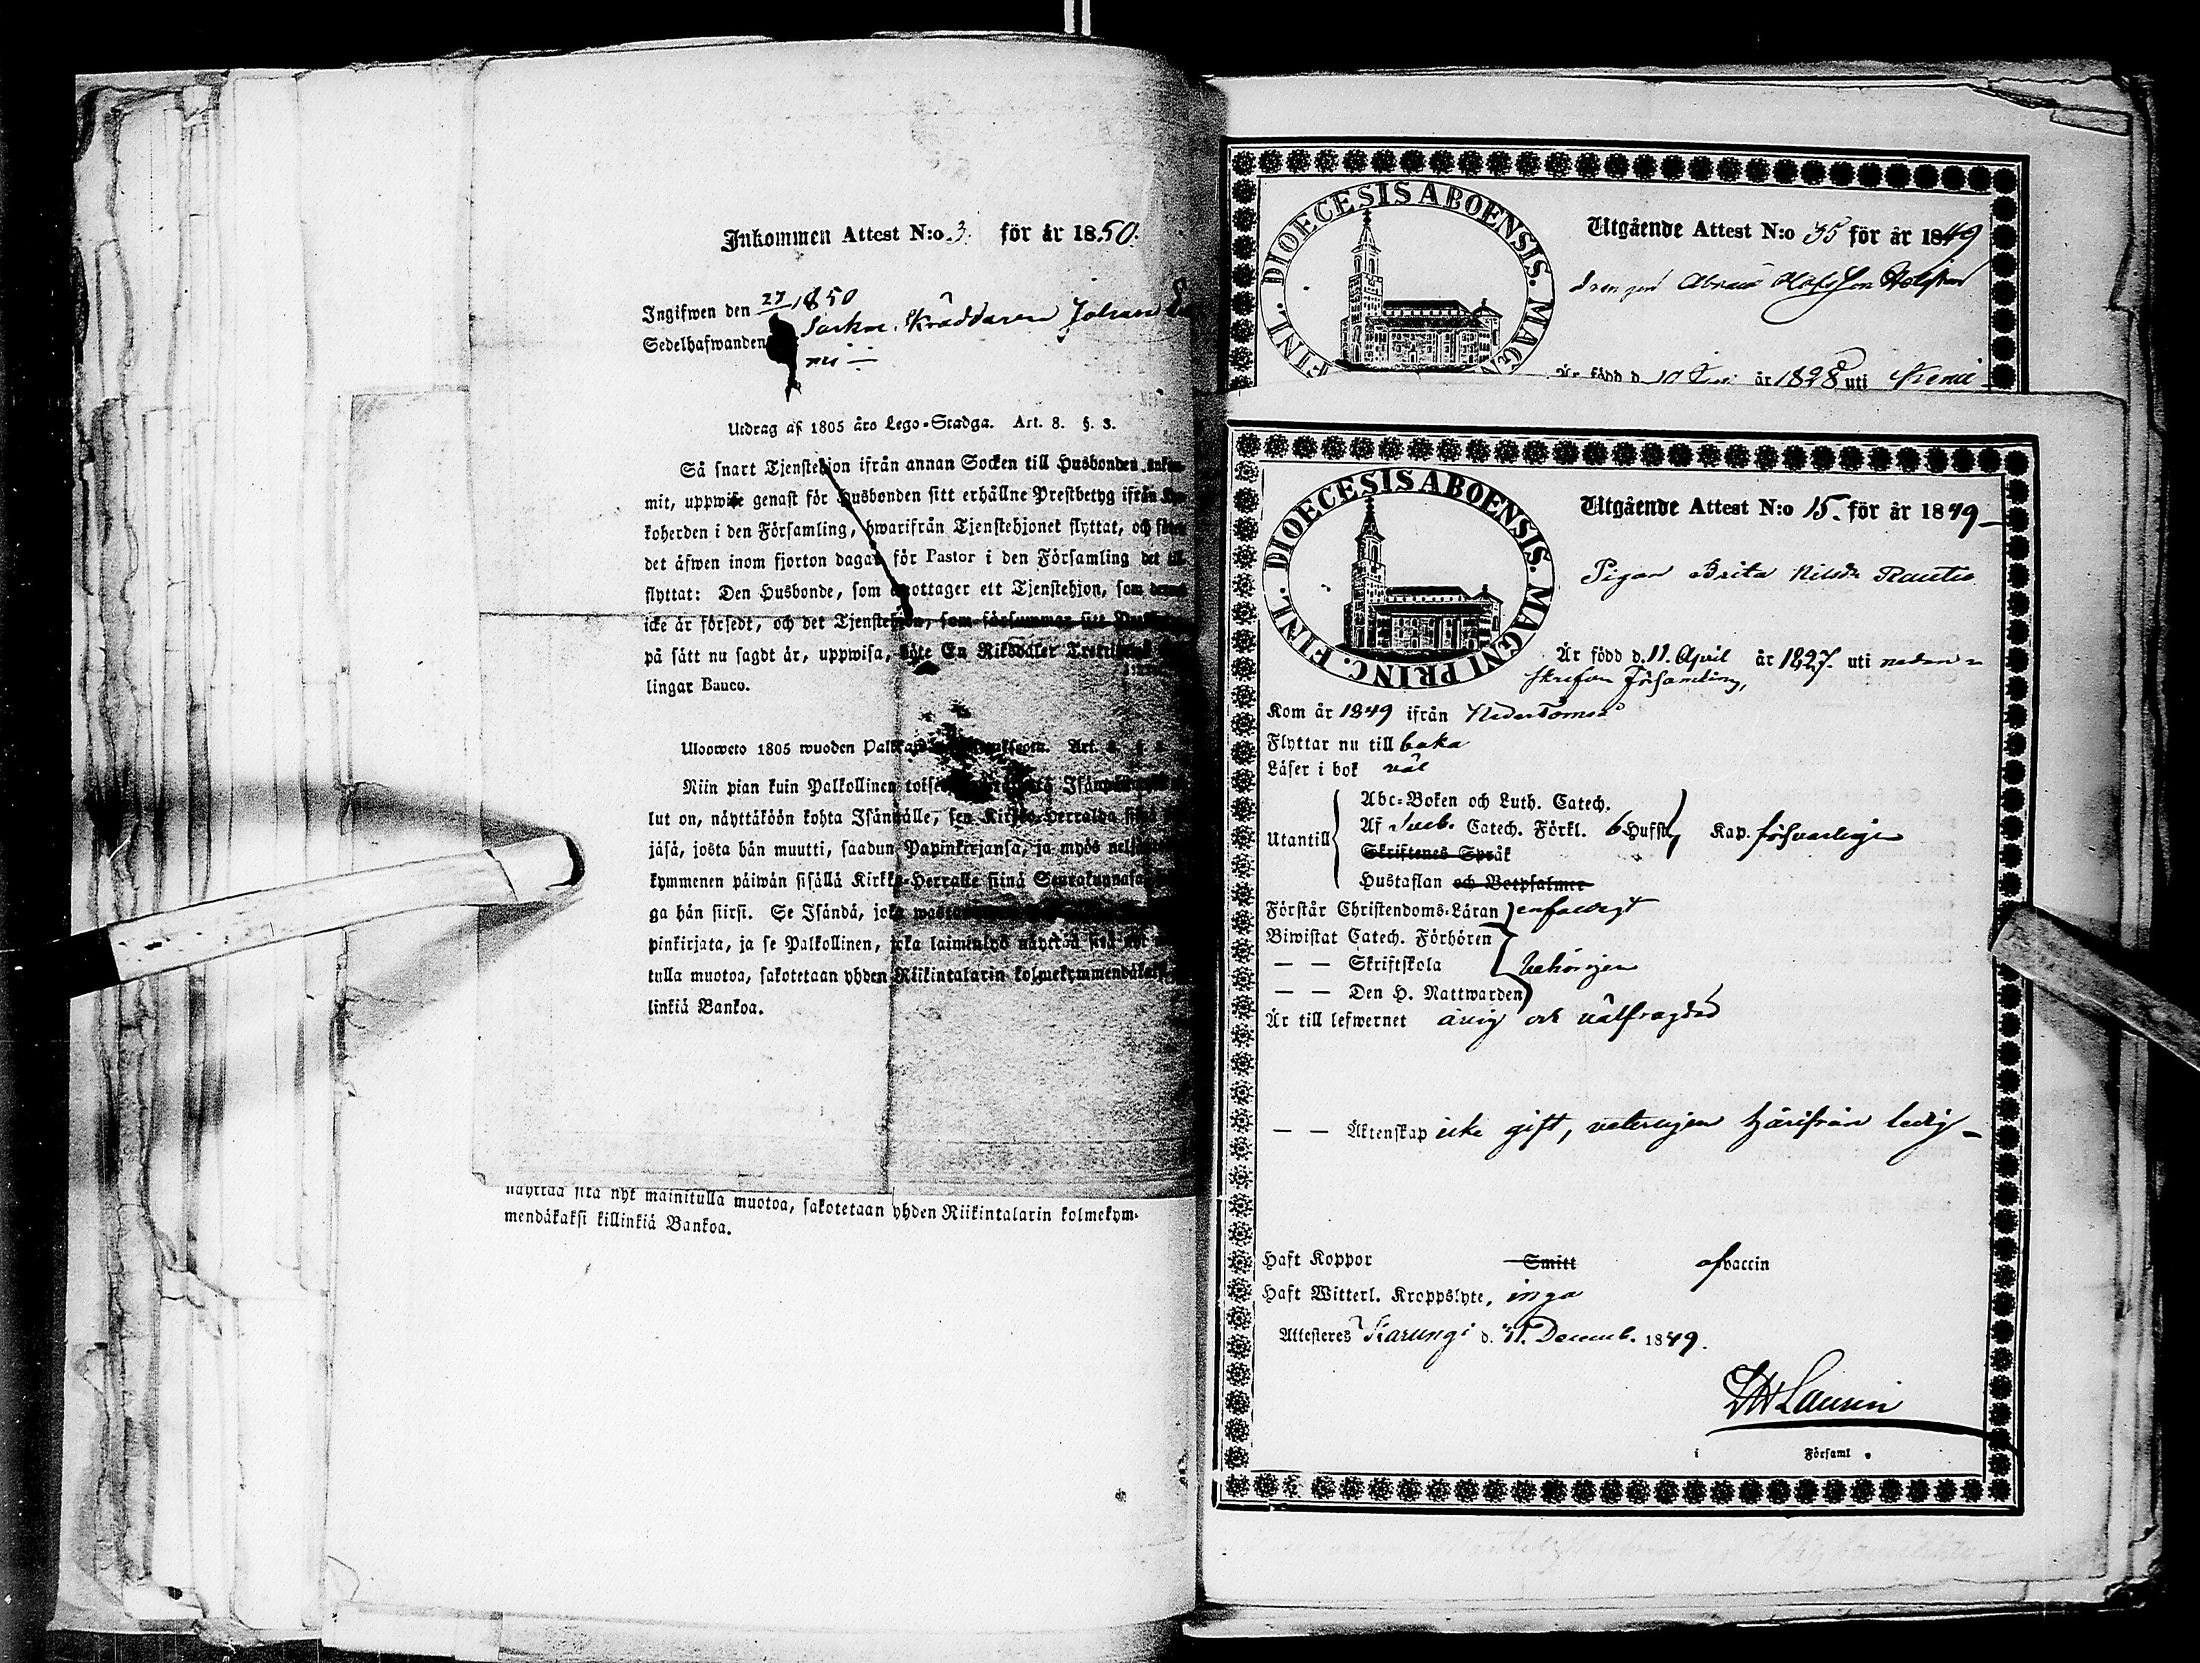 Inkommen Attest N:o 3. för år 1850.
Ingifwen den 27/1 1850
Sedelhafwanden Sockne. Skräddaren Johan
Utdrag af 1805 års Lego-Stadga. Art. 8. §. 3.
Så snart Tjenstehjon ifrån annan Socken till Husbonden
mit, uppwise genast för Husbonden sitt erhållne Prestbetyg ifrån
koherden i den Församling, hwarifrån Tjenstehjonet flyttat, och
det äfwen inom fjorton dagar för Pastor i den Församling det
flyttat: Den Husbonde, som emottager ett Tjenstehjon, som
icke är försedt, och det Tjenstehjon, som försummar sitt
på sätt nu sagdt är, uppwisa, böte En Riksdaler
lingar Banco.
Ulosweto 1805 wuoden Art.
Niin pian kuin Palkollinen
lut on, näyttäköön kohta Isännälle, sen Kirkko-Herralda
jäsä, josta hän muutti, saadun Papinkirjansa, ja myös
kymmenen päiwän sisällä Kirkko-Herralle siinä Seurakunnasa
ga hän siirsi. Se Isändä, joka
pinkirjata, ja se Palkollinen, joka laiminlyö näyttää sitä nyt
tulla muotoa, sakotetaan yhden Riikintalarin kolmekymmendäkaksi
linkiä Bankoa.
näyttää sitä nyt mainitulla muotoa, sakotetaan yhden Riikintalarin kolmekym-
mendäkaksi killinkiä Bankoa.
DIOECESIS ABOENSIS. MAGN FINL.
Utgående Attest N:o 35 för år 1849
Drengen Abram Olofsson
Är född d. 10 år 1828 uti Kemi
DIOECESIS ABOENSIS. MAGNI PRINC. FINL.
Utgående Attest N:o 15. för år 1849
Pigan Brita Nilsdr Rautio
Är född d. 11. April år 1827. uti nedan-
skrefne Församling,
Kom år 1849 ifrån NederTorneå
Flyttar nu till baka
Läser i bok väl
Utantill
Abc-Boken och Luth. Catech.
Af Sveb. Catech. Förkl. 6 Hufst, Kap. försvarligen
Skriftenes Språk
Hustaflan och Botpsalmer
Förstår Christendoms-Läran enfaldigt
Biwistat Catech. Förhören
— — Skriftskola behörigen
— — Den H. Nattwarden
Är till lefwernet ärlig och välfrägdad
— — Äktenskap icke gift, veterligen härifrån ledig
Haft Koppor Smitt af vaccin
Haft Witterl. Kroppslyte, inga
Attesteres Karungi d. 31. Decemb. 1849.
i Församl.